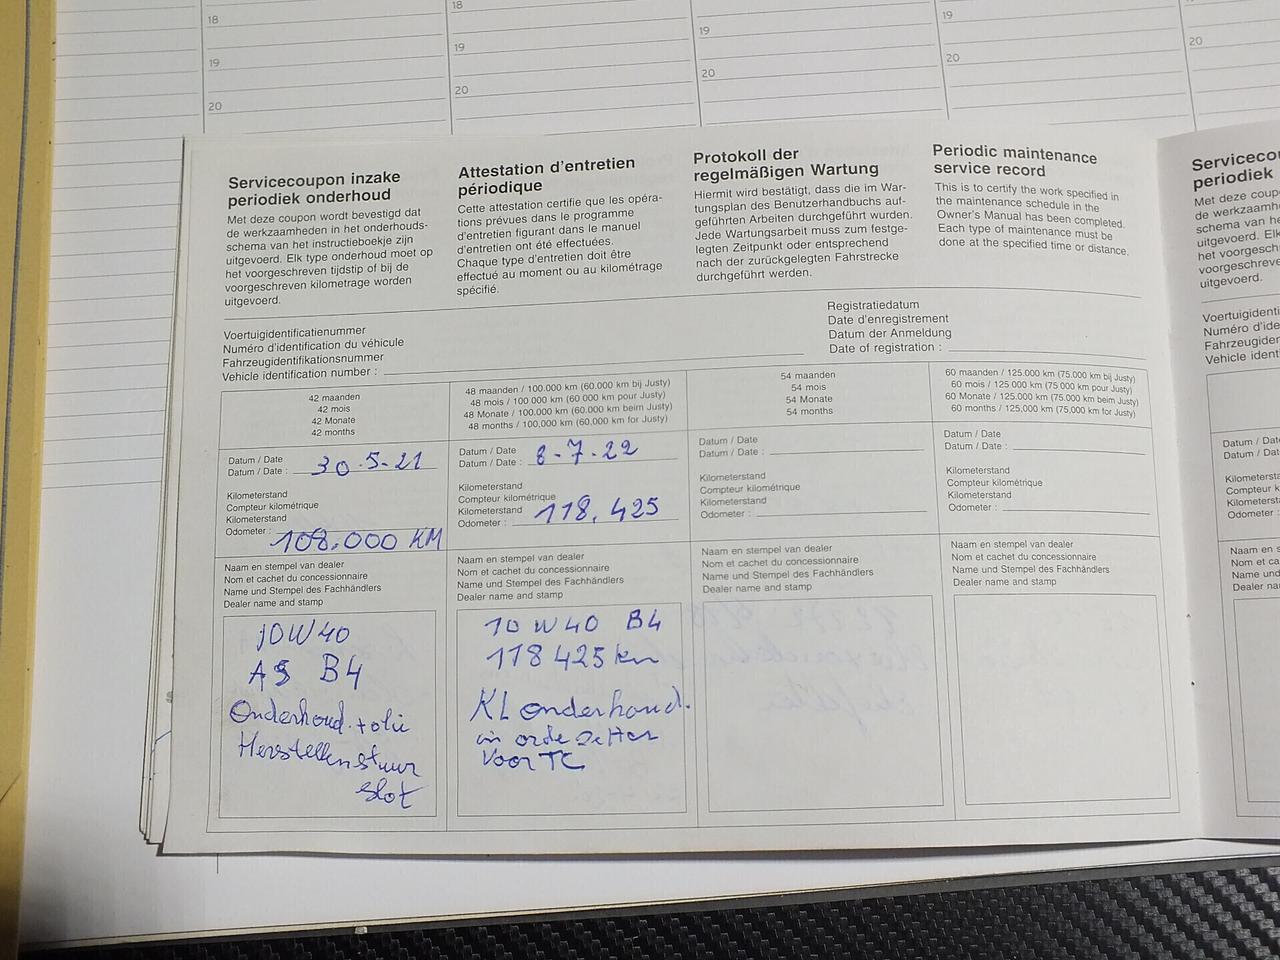 18
19
20
18
19
20
19
20
19
20
20
Servicecoupon inzake
periodiek onderhoud
Met deze coupon wordt bevestigd dat
de werkzaamheden in het onderhouds-
schema van het instructieboekje zijn
uitgevoerd. Elk type onderhoud moet op
het voorgeschreven tijdstip of bij de
voorgeschreven kilometrage worden
uitgevoerd.
Attestation d'entretien
périodique
Cette attestation certifie que les opéra-
tions prévues dans le programme
d'entretien figurant dans le manuel
d'entretien ont été effectuées.
Chaque type d'entretien doit être
effectué au moment ou au kilométrage
spécifié.
Protokoll der
regelmäßigen Wartung
Hiermit wird bestätigt, dass die im War-
tungsplan des Benutzerhandbuchs auf-
geführten Arbeiten durchgeführt wurden.
Jede Wartungsarbeit muss zum festge-
legten Zeitpunkt oder entsprechend
nach der zurückgelegten Fahrstrecke
durchgeführt werden.
Periodic maintenance
service record
This is to certify the work specified in
the maintenance schedule in the
Owner's Manual has been completed.
Each type of maintenance must be
done at the specified time or distance.
Voertuigidentificatienummer
Numéro d'identification du véhicule
Fahrzeugidentifikationsnummer
Vehicle identification number :
Registratiedatum
Date d'enregistrement
Datum der Anmeldung
Date of registration :
42 maanden
42 mois
42 Monate
42 months
48 maanden / 100.000 km (60.000 km bij Justy)
48 mois / 100 000 km (60 000 km pour Justy)
48 Monate / 100.000 km (60.000 km beim Justy)
48 months / 100,000 km (60,000 km for Justy)
54 maanden
54 mois
54 Monate
54 months
60 maanden / 125.000 km (75.000 km bij Justy)
60 mois / 125 000 km (75 000 km pour Justy)
60 Monate / 125.000 km (75.000 km beim Justy)
60 months / 125,000 km (75,000 km for Justy)
Datum / Date
Datum / Date : 30.5-21
Datum / Date
Datum / Date : 8-7-22
Datum / Date
Datum / Date :
Datum / Date
Datum / Date :
Kilometerstand
Compteur kilométrique
Kilometerstand
Odometer : 108.000 KM
Kilometerstand
Compteur kilométrique
Kilometerstand
Odometer : 118.425
Kilometerstand
Compteur kilométrique
Kilometerstand
Odometer :
Kilometerstand
Compteur kilométrique
Kilometerstand
Odometer :
Naam en stempel van dealer
Nom et cachet du concessionnaire
Name und Stempel des Fachhändlers
Dealer name and stamp
Naam en stempel van dealer
Nom et cachet du concessionnaire
Name und Stempel des Fachhändlers
Dealer name and stamp
Naam en stempel van dealer
Nom et cachet du concessionnaire
Name und Stempel des Fachhändlers
Dealer name and stamp
Naam en stempel van dealer
Nom et cachet du concessionnaire
Name und Stempel des Fachhändlers
Dealer name and stamp
10W40
B4
Onderhoud + olie
Herstellen stuur
slot
10W40 B4
118425 km
KL onderhoud.
in orde zetten
voor TC
Servicecou
periodiek
Met deze coup
de werkzaamh
schema van he
uitgevoerd. Elk
het voorgeschr
voorgeschreven
uitgevoerd.
Voertuigidenti
Numéro d'iden
Fahrzeugiden
Vehicle identifi